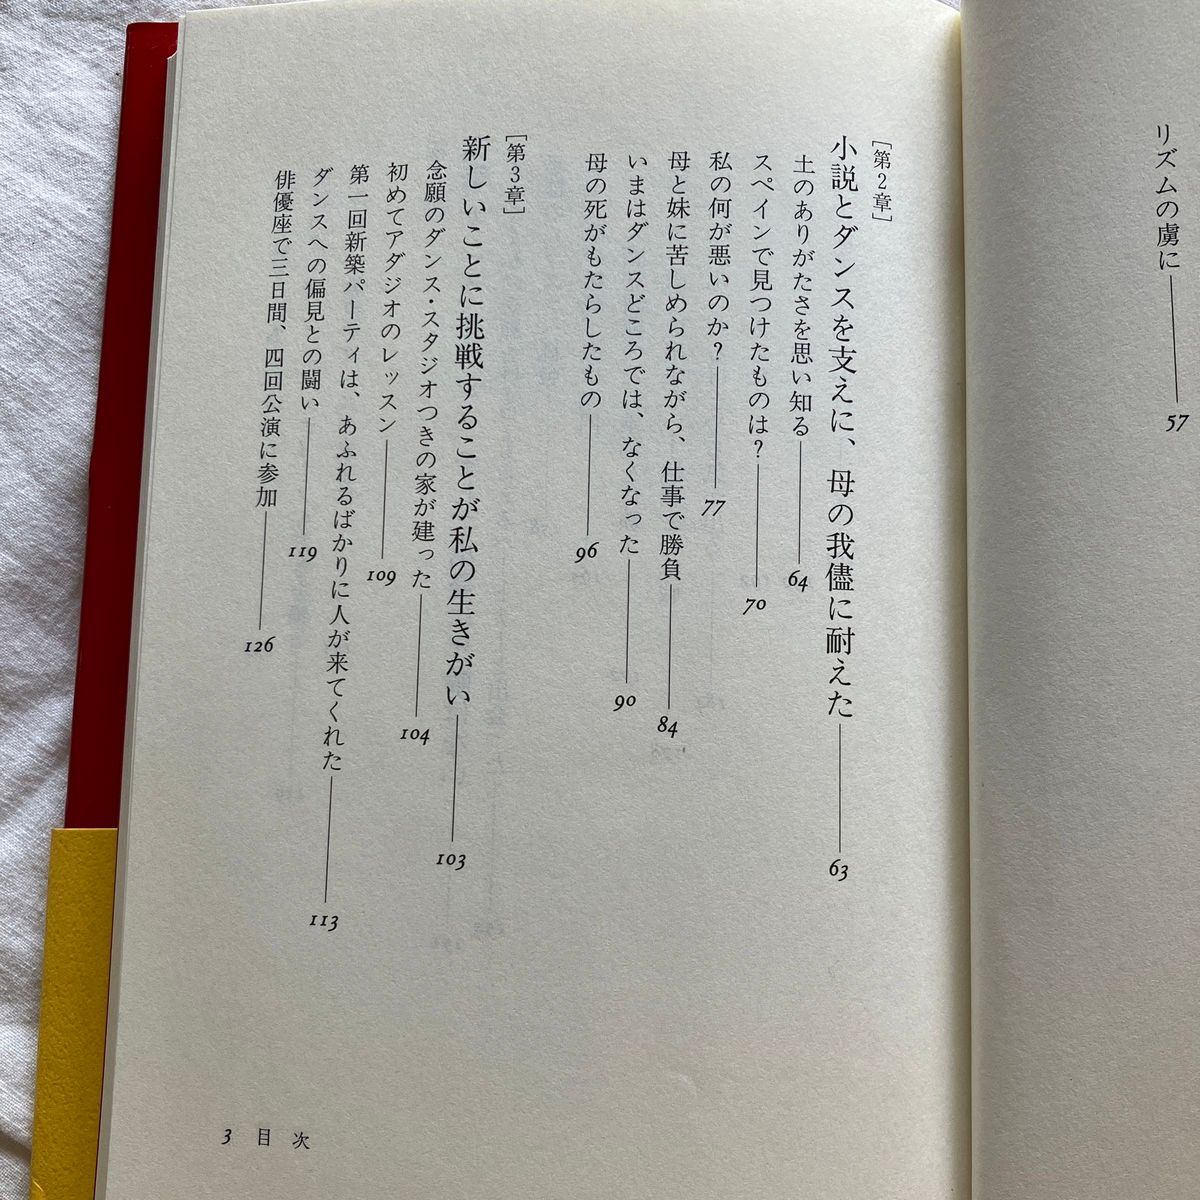 リズムの虜に 57
[第2章]
小説とダンスを支えに、母の我儘に耐えた 63
土のありがたさを思い知る 64
スペインで見つけたものは? 70
私の何が悪いのか? 77
母と妹に苦しめられながら、仕事で勝負 84
いまはダンスどころでは、なくなった 90
母の死がもたらしたもの 96
[第3章]
新しいことに挑戦することが私の生きがい 103
念願のダンス・スタジオつきの家が建った 104
初めてアダジオのレッスン 109
第一回新築パーティは、あふれるばかりに人が来てくれた 113
ダンスへの偏見との闘い 119
俳優座で三日間、四回公演に参加 126
3 目次